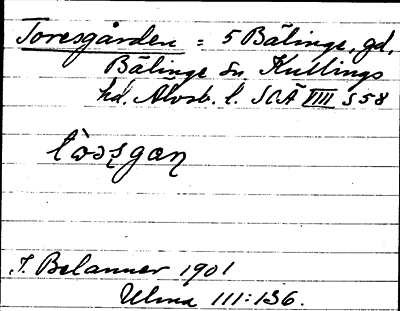 Toresgården = 5 Bälinge, gd,
Bälinge sn Kullings
hd. Älvsb. l. SOÄ VIII s 58
J. Belanner 1901
Ulma 111:136.